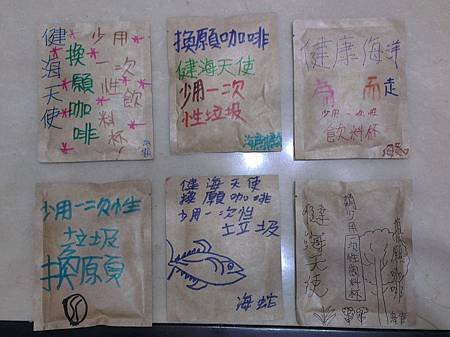 健海天使
換願咖啡
少用一次性飲料杯
換願咖啡
健海天使
少用一次
性垃圾
健康海洋
為而走
少用一次性
飲料杯
少用一次性
垃圾
換願
健海天使
換願咖啡
少用一次性
垃圾
健海天使
請少用
一次性飲料杯
換願咖啡